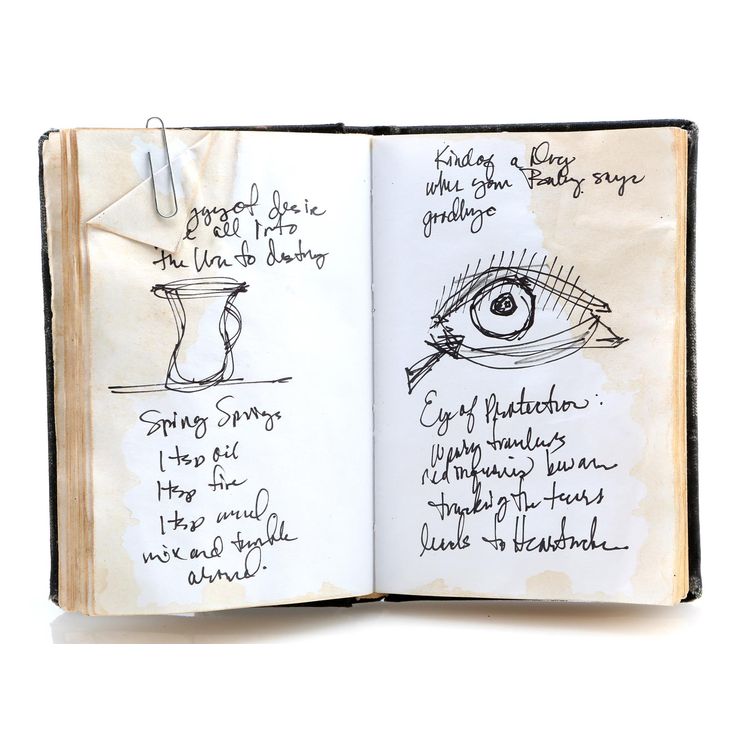 all into
the Urn to destiny
Spring Springs
1 tsp oil
1 tsp fire
1 tsp wind
mix and tumble
around.
Kind of a Day
when your Baby says
goodbye
Eye of Protection:
Weary travelers
beware
tracking the tears
leads to Heartache.